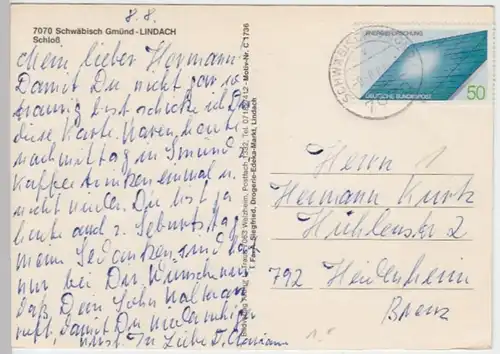 8.8.
7070 Schwäbisch Gmünd - LINDACH
Schloß
Mein lieber Hermann!
Damit Du nicht gar so
traurig bist schicke ich Dir
diese Karte. Waren heute
nachmittag in Gmünd
Kaffee trinken einmal u.
nicht wieder. Du bist ja
heute auf z. Geburtstag
meine Gedanken sind
nur bei Dir. Wünsche nur
daß Dein Sohn
ruft, damit Du wieder
In Liebe D.
Postfach 1332, Tel. 07182/412 - Motiv-Nr. C 1736
Siegfried, Drogerie-Edeka-Markt, Lindach
ENERGIEFORSCHUNG
DEUTSCHE BUNDESPOST
50
SCHWÄBISCH
Herrn
Hermann Kurtz
Mühlenstr 2
792 Heidenheim
Brenz
1.-